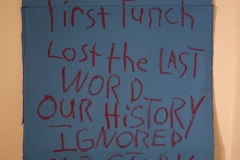 First Punch
Lost the LAST
WORD
OUR HiSTORY
IGNORED